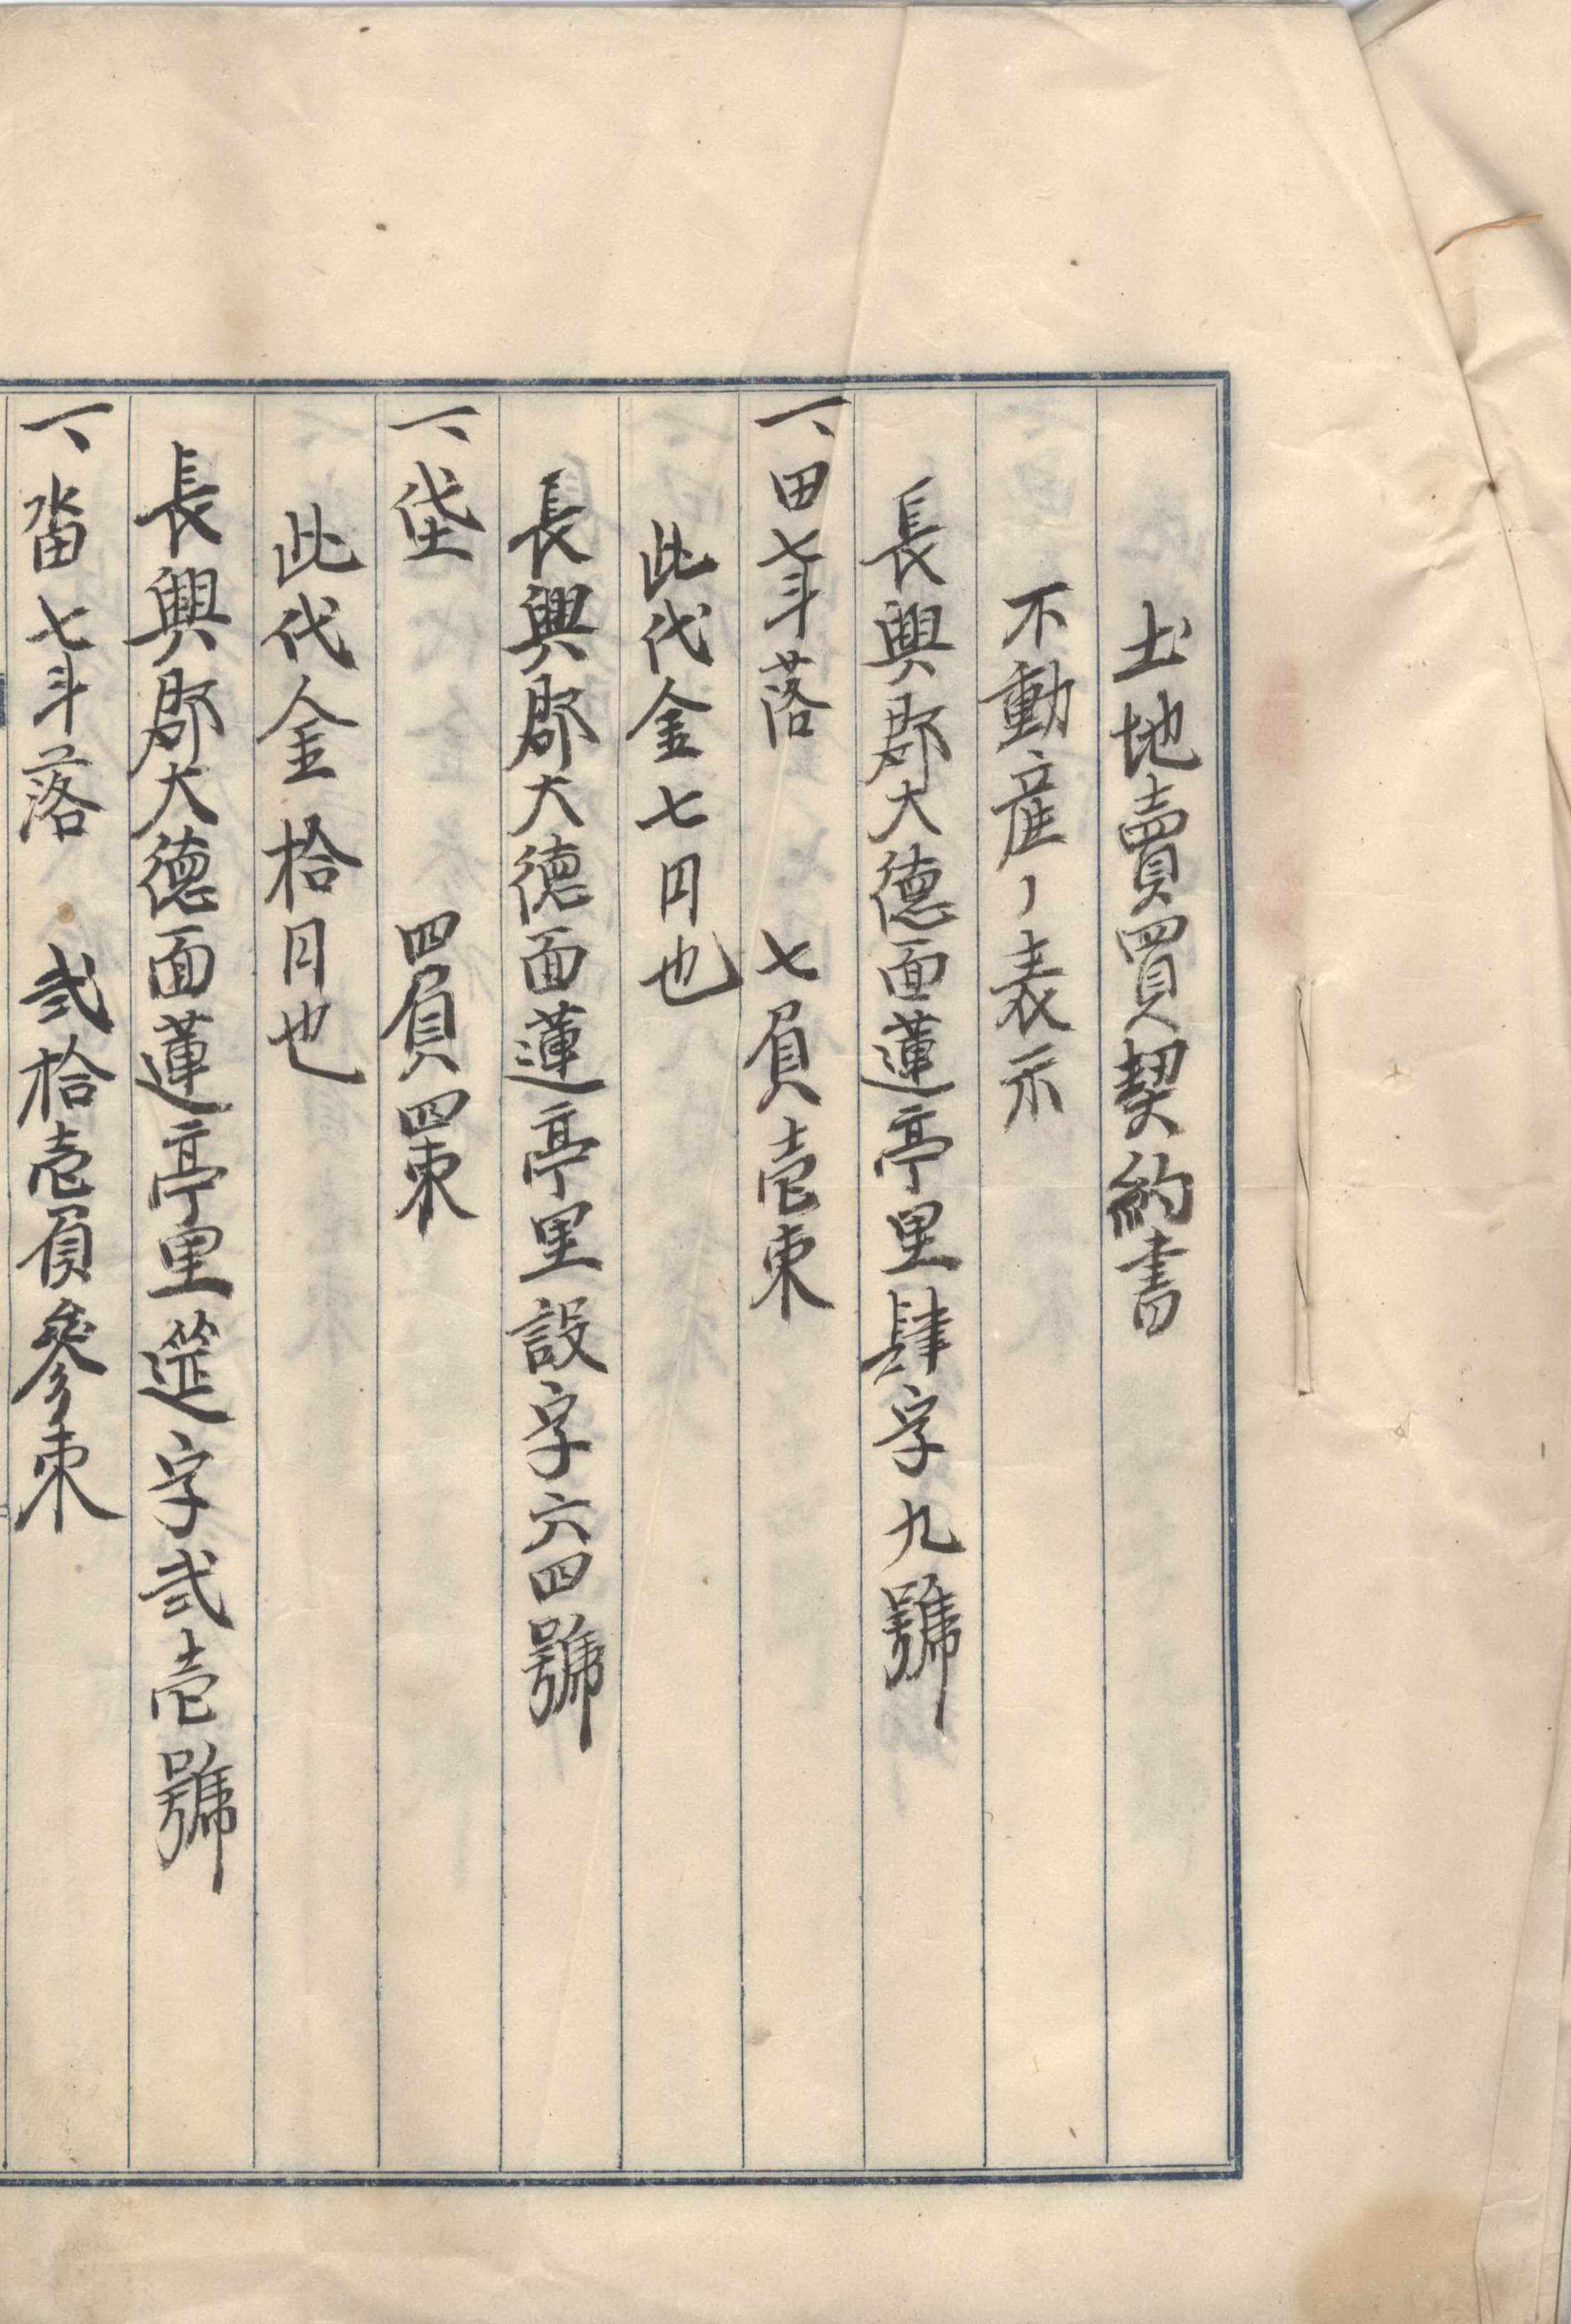 土地賣買契約書
不動産ノ表示
長興郡大德面蓮亭里肆字九號
一、田七斗落 七負壹束
此代金七円也
長興郡大德面蓮亭里設字六四號
一、垈 四負四束
此代金拾円也
長興郡大德面蓮亭里筵字貳壱號
一、畓七斗落 貳拾壱負參束